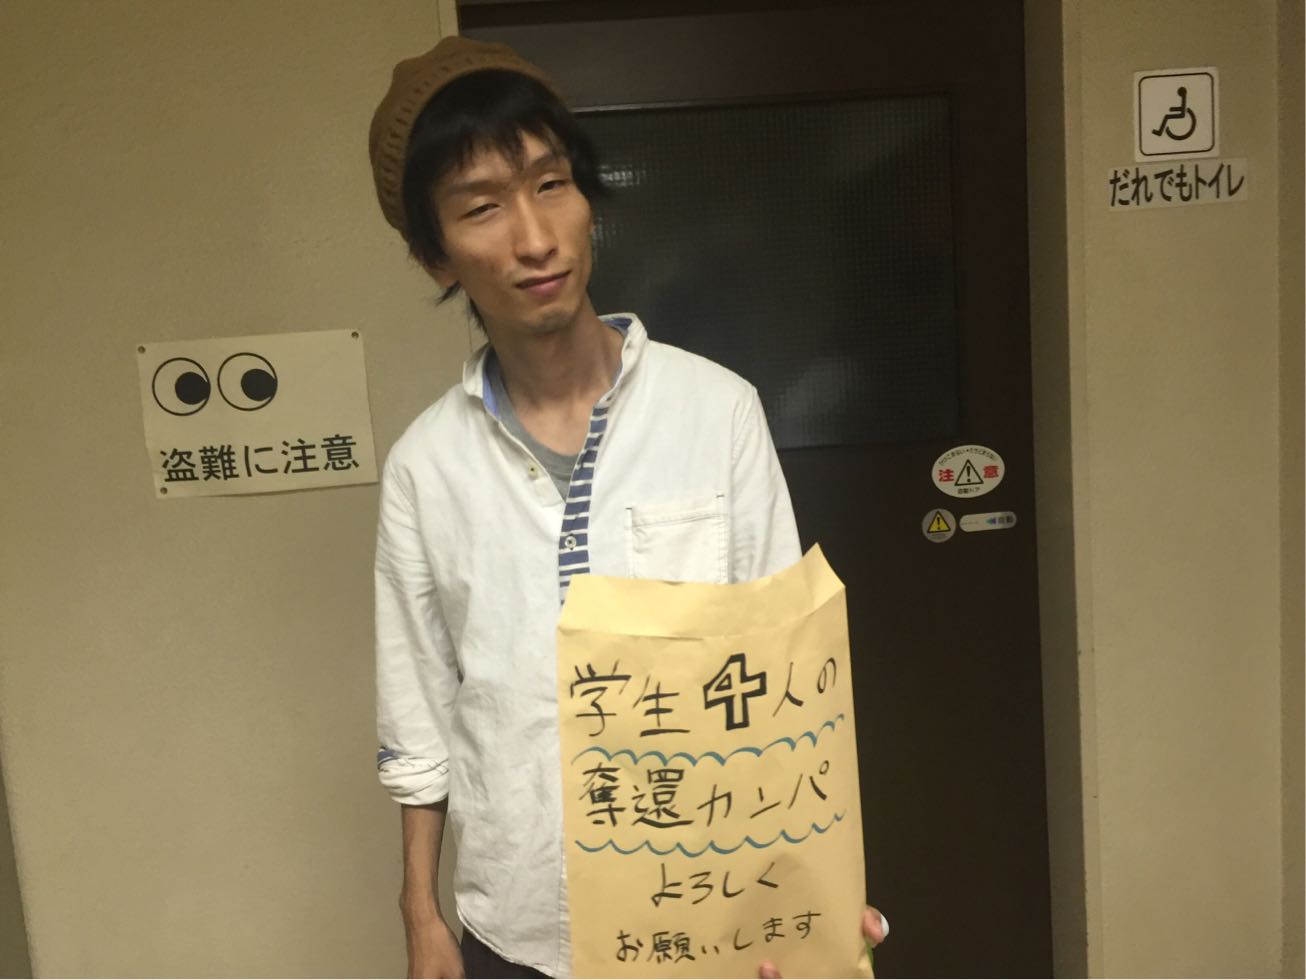 盗難に注意
だれでもトイレ
注意
学生4人の
奪還カンパ
よろしく
お願いします